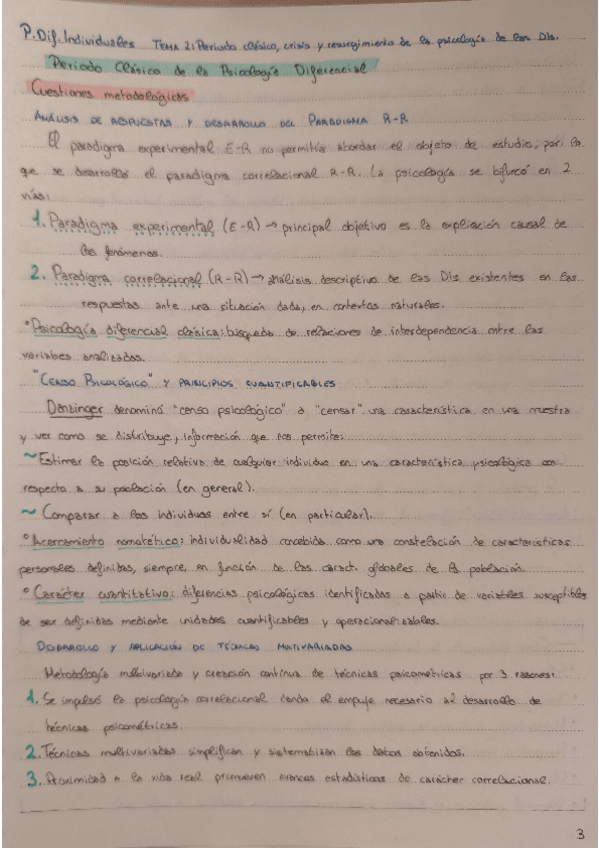 P. Dif. Individuales TEMA 2: Periodo clásico, crisis y resurgimiento de la psicología de las DIs.
Periodo Clásico de la Psicología Diferencial
Cuestiones metodológicas
ANÁLISIS DE RESPUESTAS Y DESARROLLO DEL PARADIGMA R-R
El paradigma experimental E-R no permitía abordar el objeto de estudio, por lo
que se desarrolló el paradigma correlacional R-R. La psicología se bifurcó en 2
vías:
1. Paradigma experimental (E-R) → principal objetivo es la explicación causal de
los fenómenos.
2. Paradigma correlacional (R-R) → análisis descriptivo de las DIs existentes en las
respuestas ante una situación dada, en contextos naturales.
° Psicología diferencial clásica: búsqueda de relaciones de interdependencia entre las
variables analizadas.
"CENSO PSICOLÓGICO" Y PRINCIPIOS CUANTIFICABLES
Danzinger denominó "censo psicológico" a "censar" una característica en una muestra
y ver como se distribuye, información que nos permite:
~ Estimar la posición relativa de cualquier individuo en una característica psicológica con
respecto a su población (en general).
~ Comparar a los individuos entre sí (en particular).
° Acercamiento nomotético: individualidad concebida como una constelación de características
personales definidas, siempre, en función de las caract. globales de la población
° Carácter cuantitativo: diferencias psicológicas identificadas a partir de variables susceptibles
de ser definidas mediante unidades cuantificables y operacionalizables.
DESARROLLO Y APLICACIÓN DE TÉCNICAS MULTIVARIADAS
Metodología multivariada y creación continua de técnicas psicométricas por 3 razones:
1. Se impulsó la psicología correlacional dando el empuje necesario al desarrollo de
técnicas psicométricas.
2. Técnicas multivariadas simplifican y sistematizan los datos obtenidos.
3. Proximidad a la vida real promueven avances estadísticos de carácter correlacional.
3